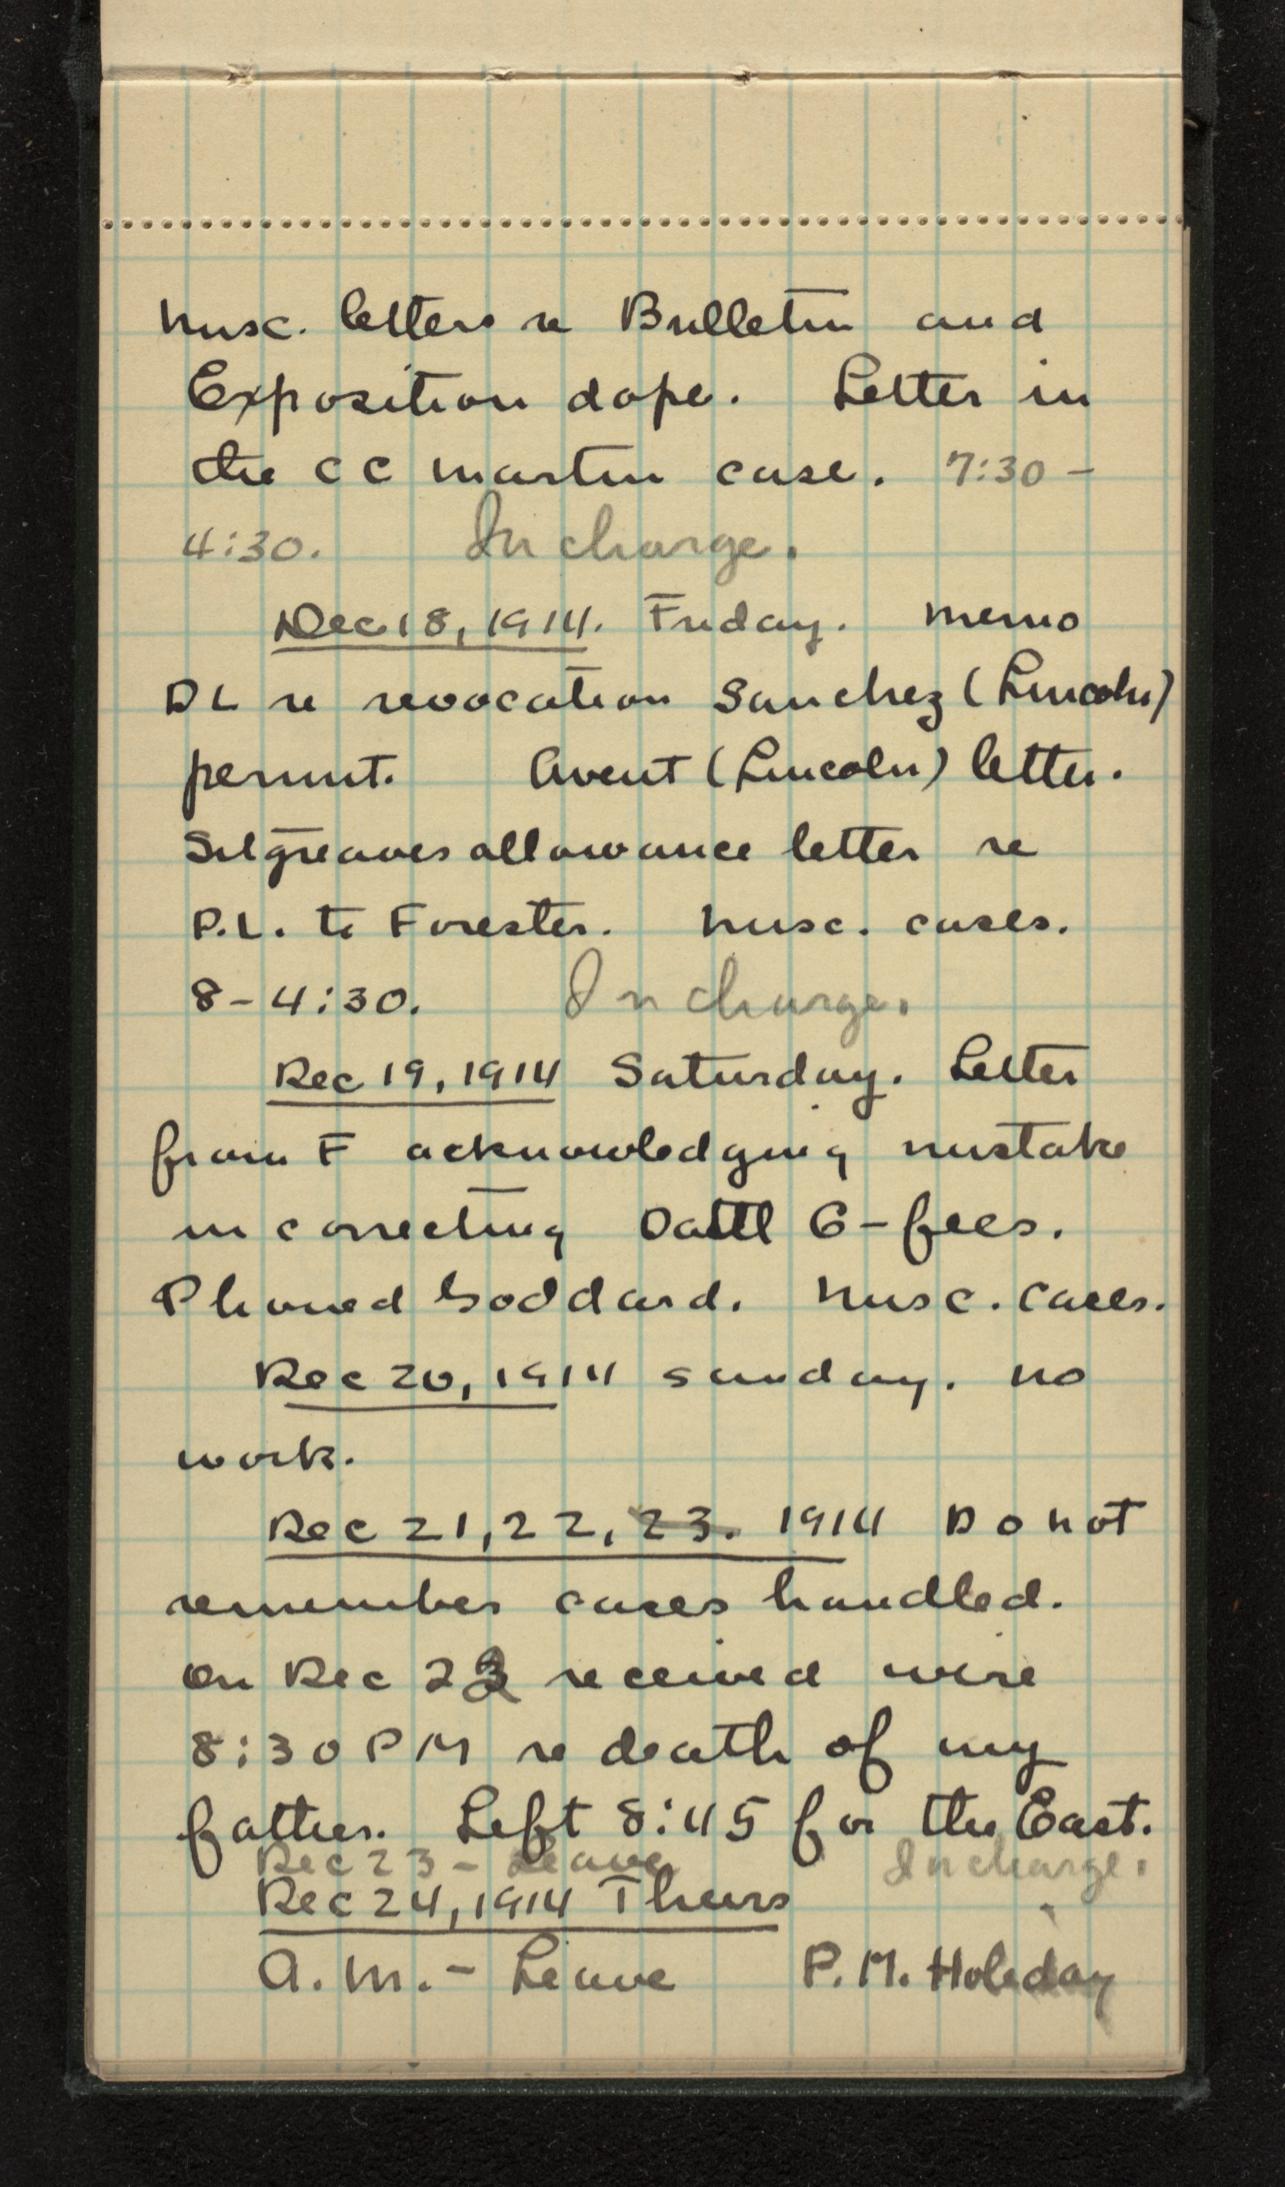 Misc. letters re Bulletin and
Exposition dope. Letter in
the C C Martin case. 7:30 -
4:30. In charge.
Dec 18, 1914. Friday. Memo
DL re revocation Sanchez (Lincoln)
permit. Avent (Lincoln) letter.
Sitgreaves allowance letter re
P.L. to Forester. Misc. cases.
8-4:30. In charge.
Dec 19, 1914 Saturday. Letter
from F acknowledging mistake
in correcting Datil G-fees.
Phoned Goddard. Misc. cases.
Dec 20, 1914 Sunday. No
work.
Dec 21, 22, 23. 1914 Do not
remember cases handled.
On Dec 22 received wire
8:30 PM re death of my
father. Left 8:45 for the East.
Dec 23 - Leave In charge.
Dec 24, 1914 Thurs
A.M. - Leave P.M. Holiday